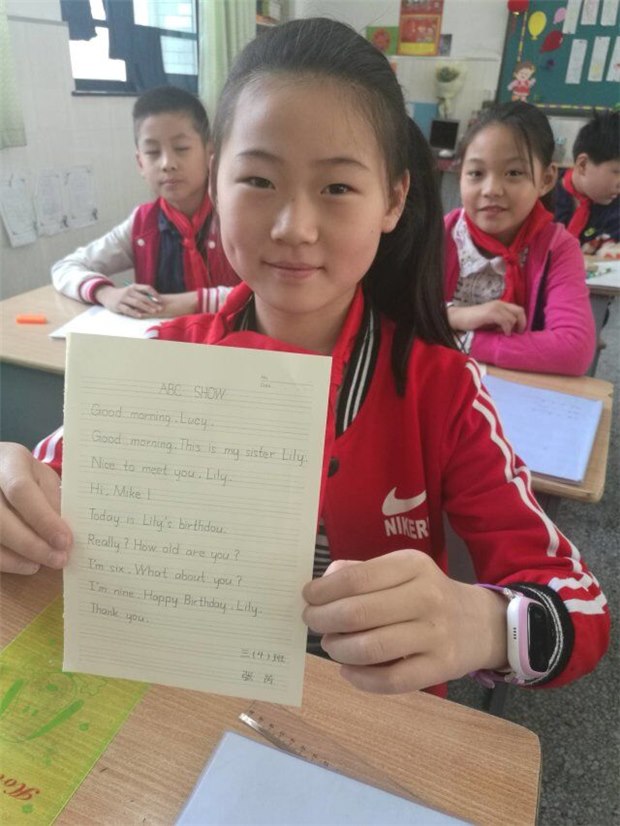 No.
Date
ABC SHOW
Good morning, Lucy.
Good morning. This is my sister Lily.
Nice to meet you, Lily.
Hi, Mike!
Today is Lily's birthday.
Really? How old are you?
I'm six. What about you?
I'm nine. Happy Birthday, Lily.
Thank you.
三(4)班
张芮
NIKER